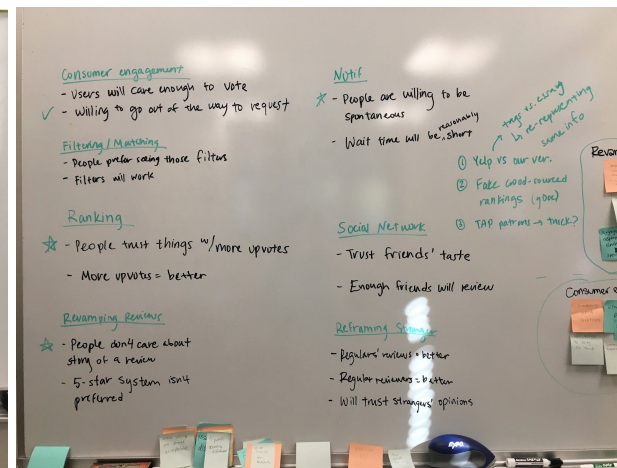 Consumer engagement
- Users will care enough to vote
✓ - Willing to go out of the way to request
Filtering/Matching
- People prefer seeing those filters
- Filters will work
Ranking
☆ - People trust things w/more upvotes
- More upvotes = better
Revamping Reviews
☆ - People don't care about
story of a review
- 5-star system isn't
preferred
Notif
☆ - People are willing to be
spontaneous
- Wait time will be reasonably short
Social Network
- Trust friends' taste
- Enough friends will review
Reframing
- Regulars' reviews = better
- Regular reviewers = better
- Will trust strangers' opinions
tags vs. essay
↳ re-representing
same info
① Yelp vs our ver.
② Fake
rankings (gdoc)
③ TAP patrons → truck?
Consumer
expo